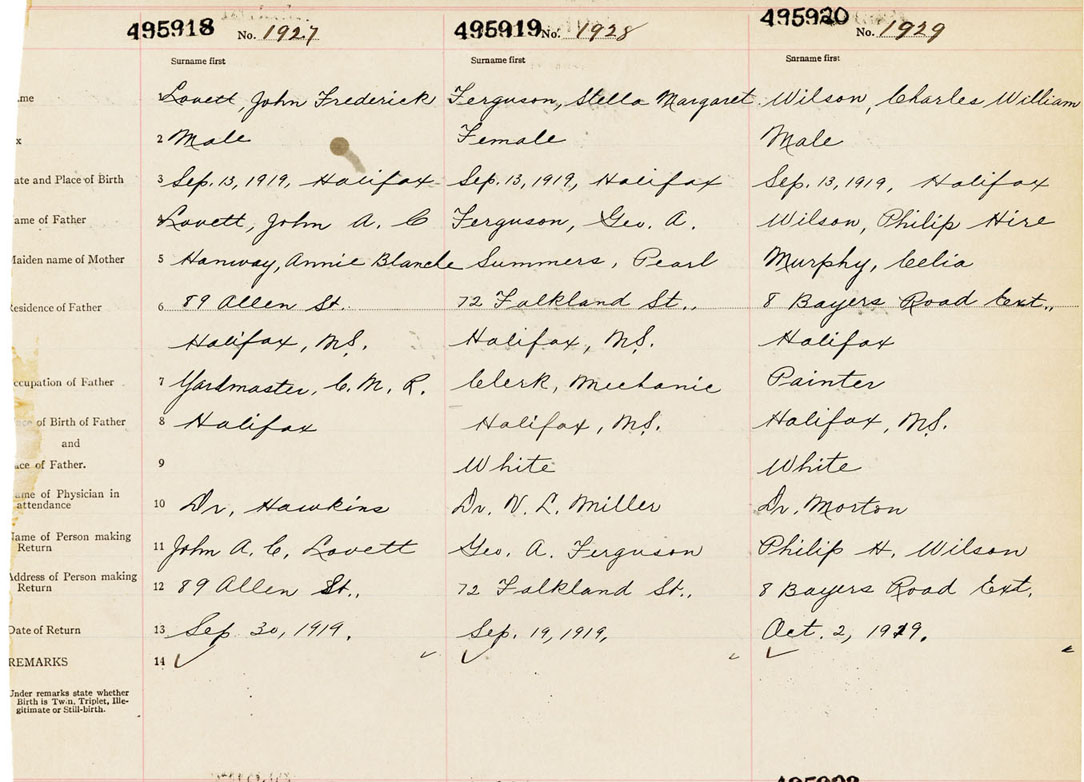 495918 No. 1927 495919 No. 1928 495920 No. 1929
Surname first Surname first Surname first
me Lovett, John Frederick Ferguson, Stella Margaret Wilson, Charles William
x 2 Male Female Male
ate and Place of Birth 3 Sep. 13, 1919, Halifax Sep. 13, 1919, Halifax Sep. 13, 1919, Halifax
ame of Father Lovett, John A. C Ferguson, Geo. A. Wilson, Philip Hire
Maiden name of Mother 5 Hanway, Annie Blanche Summers, Pearl Murphy, Celia
Residence of Father 6 89 Allen St. 72 Falkland St., 8 Bayers Road Ext.,
Halifax, N.S. Halifax, N.S. Halifax
ccupation of Father 7 Yardmaster, C. N. R. Clerk, Mechanic Painter
of Birth of Father 8 Halifax Halifax, N.S. Halifax, N.S.
and
ace of Father. 9 White White
ame of Physician in
attendance 10 Dr, Hawkins Dr. V. L. Miller Dr. Morton
Name of Person making
Return 11 John A. C. Lovett Geo. A. Ferguson Philip H. Wilson
Address of Person making
Return 12 89 Allen St., 72 Falkland St., 8 Bayers Road Ext.
Date of Return 13 Sep. 30, 1919. Sep. 19, 1919, Oct. 2, 1919.
REMARKS 14
Under remarks state whether
Birth is Twin, Triplet, Ille-
gitimate or Still-birth.